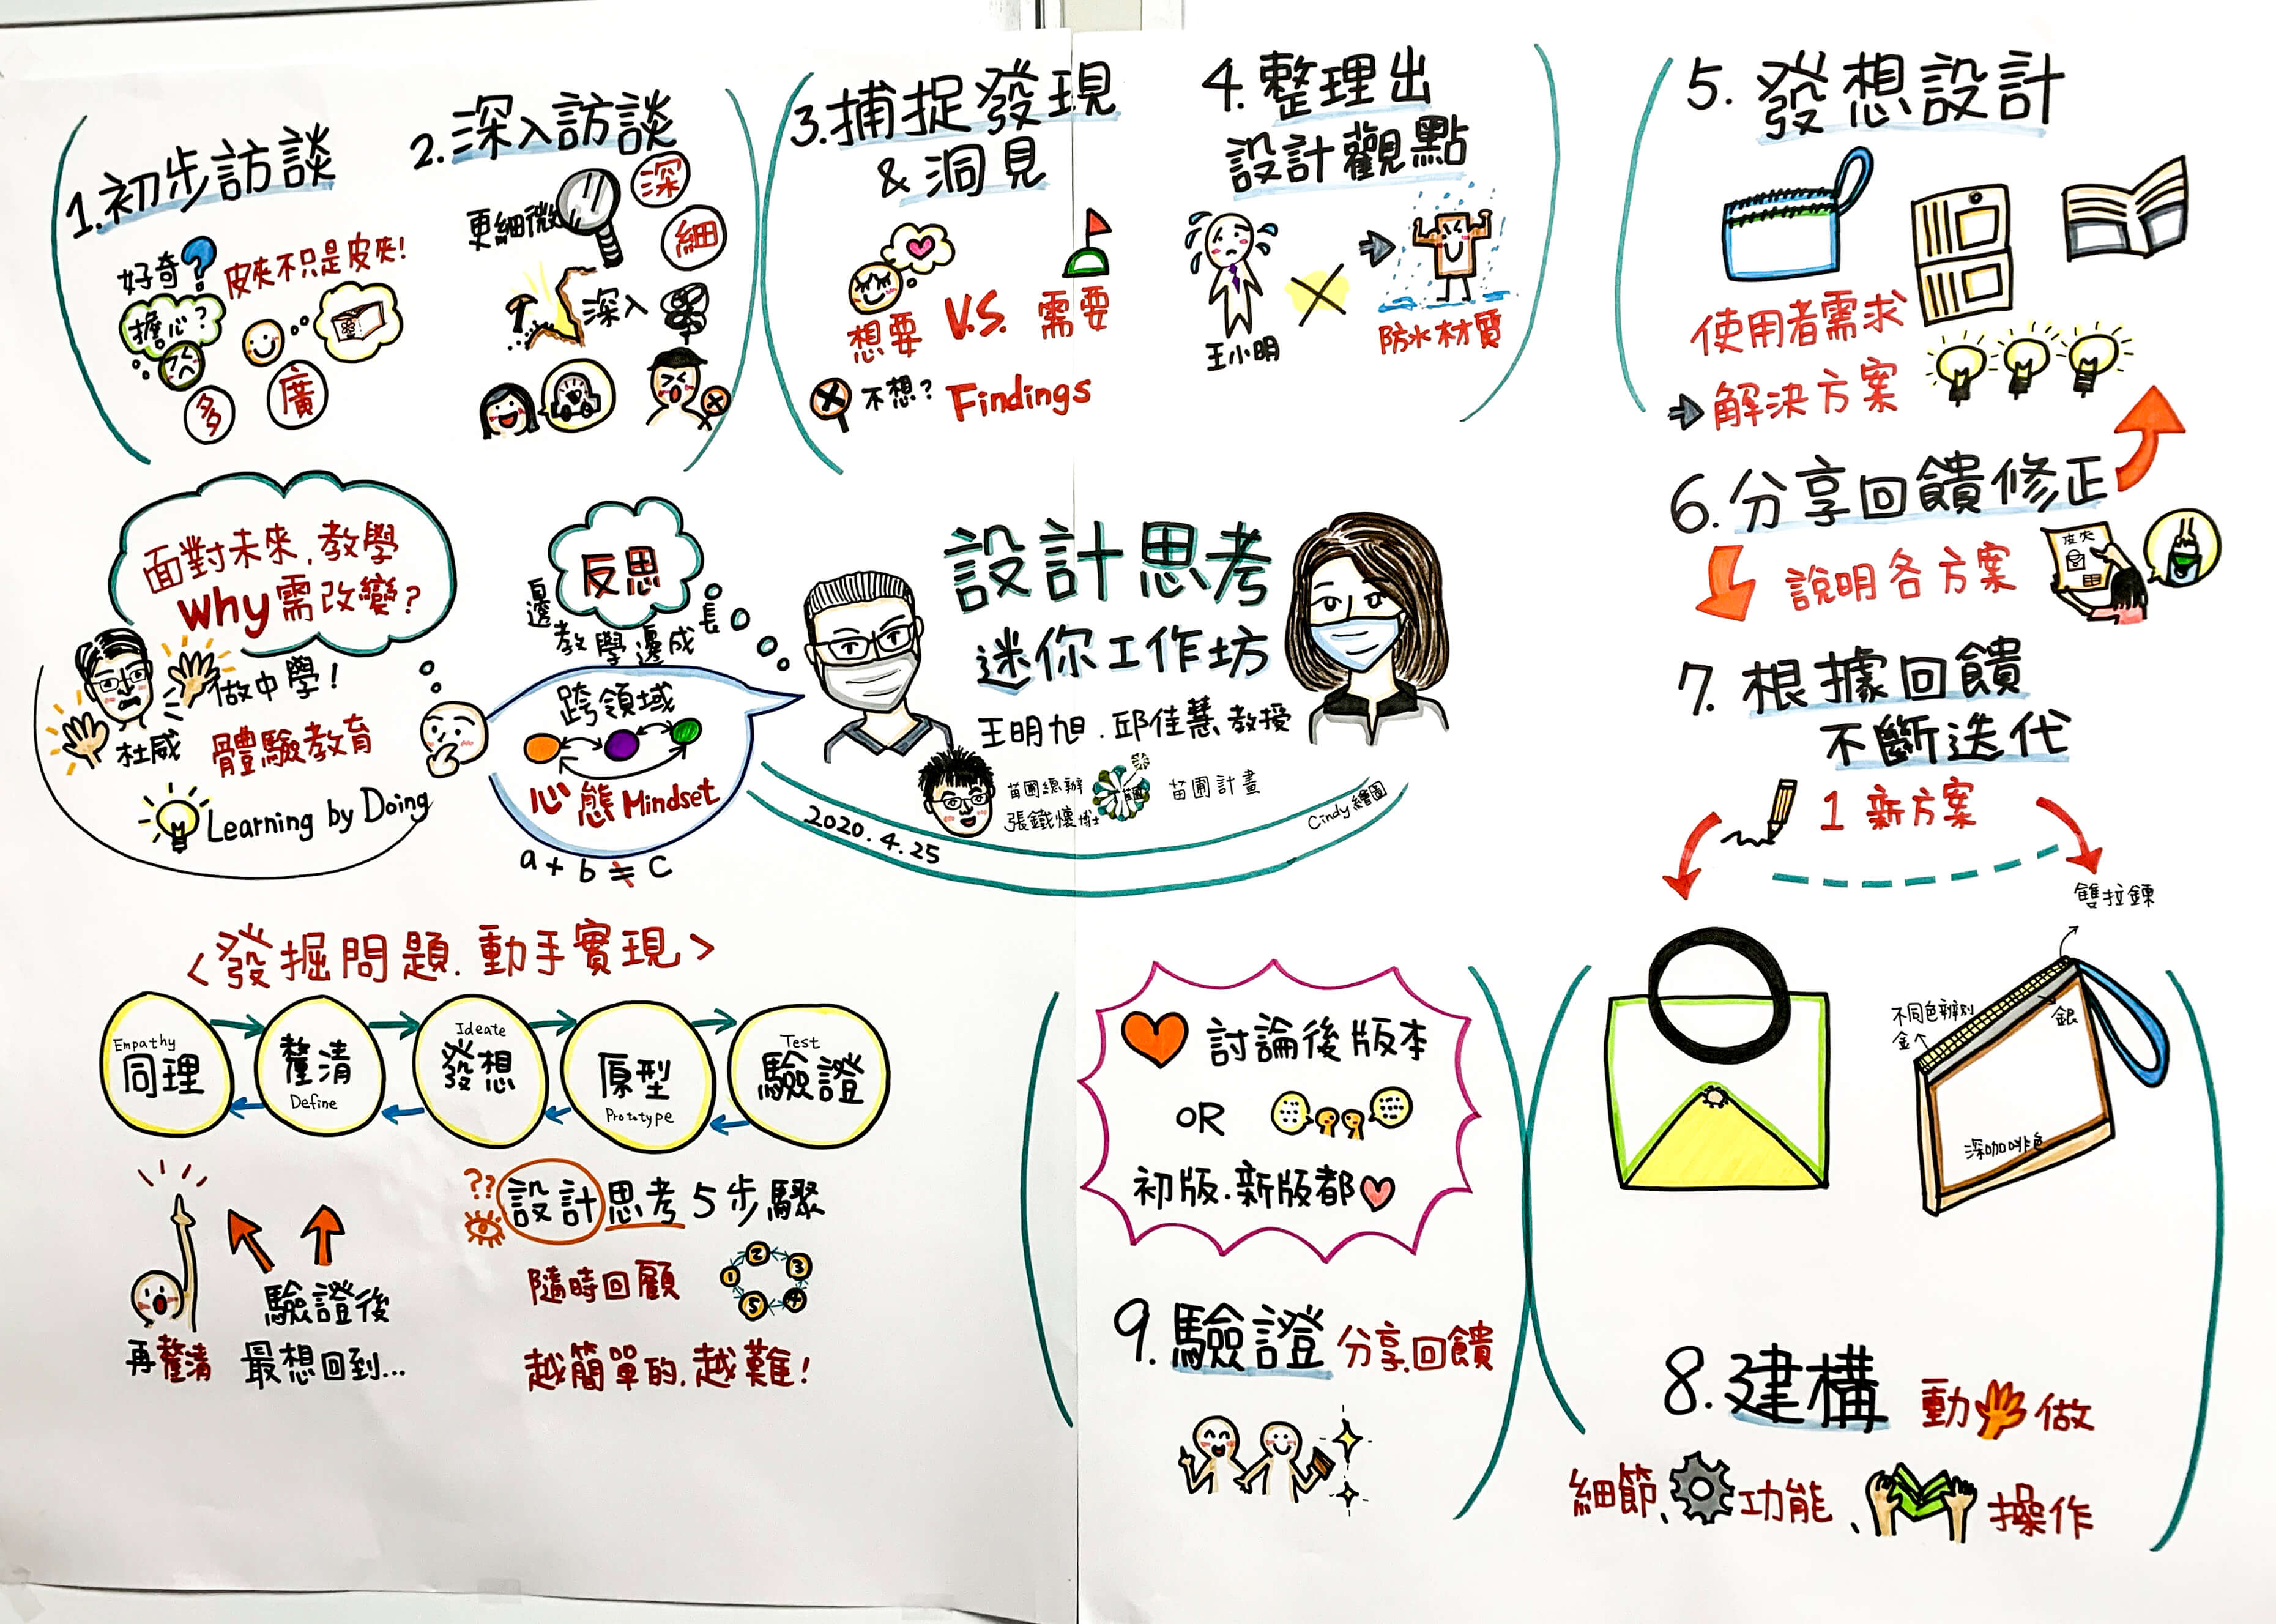 1.初步訪談
好奇?
皮夾不只是皮夾!
擔心?
多
廣
2.深入訪談
更細微
深
細
深入
3.捕捉發現
&洞見
想要 V.S. 需要
不想?
Findings
4.整理出
設計觀點
王小明
防水材質
5.發想設計
使用者需求
解決方案
6.分享回饋修正
說明各方案
皮夾
7.根據回饋
不斷迭代
1 新方案
雙拉鍊
不同色辨別
金
銀
深咖啡色
8.建構 動 做
細節、 功能、 操作
9.驗證 分享.回饋
討論後版本
OR
初版.新版都
面對未來,教學
why需改變?
做中學!
杜威
體驗教育
Learning by Doing
反思
邊教學邊成長
跨領域
心態 Mindset
a + b ≒ c
設計思考
迷你工作坊
王明旭.邱佳慧 教授
苗圃總辦
張鐵懷博士
苗圃
苗圃計畫
Cindy繪圖
2020.4.25
<發掘問題.動手實現>
Empathy
同理
釐清
Define
Ideate
發想
原型
Prototype
Test
驗證
再釐清
驗證後
最想回到...
??
設計思考5步驟
隨時回顧
1
2
3
4
5
越簡單的,越難!